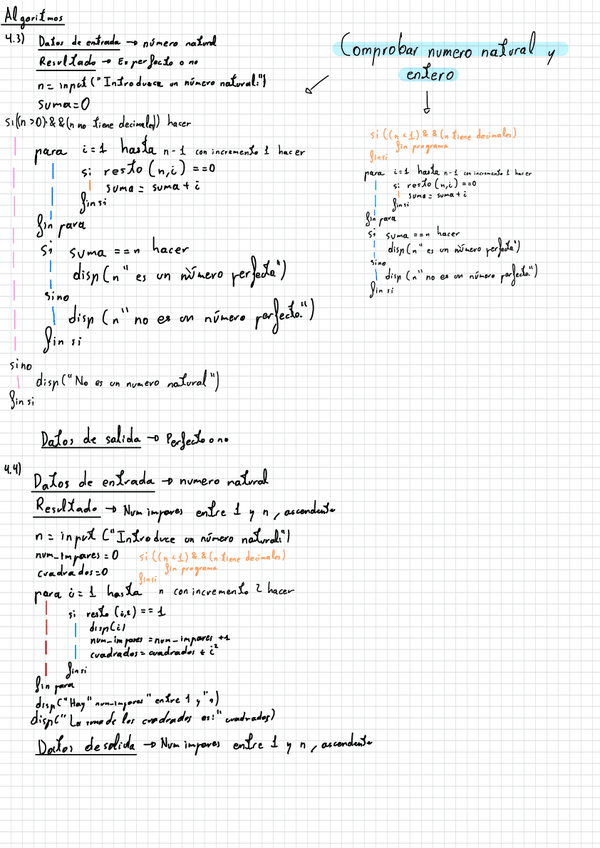 Algoritmos
4.3) Datos de entrada → número natural
Resultado → Es perfecto o no
n = input ("Introduce un número natural:")
suma=0
si((n>0)&&(n no tiene decimales)) hacer
para i=1 hasta n-1 con incremento 1 hacer
si resto (n,i) ==0
suma = suma + i
fin si
fin para
si suma ==n hacer
disp(n" es un número perfecto")
sino
disp (n" no es un número perfecto.")
fin si
sino
disp("No es un numero natural")
fin si
Datos de salida → Perfecto o no
Comprobar numero natural y
entero
si ((n<1) && (n tiene decimales)
fin programa
finsi
para i=1 hasta n-1 con incremento 1 hacer
si resto(n,i) ==0
suma = suma + i
finsi
fin para
si suma ==n hacer
disp(n" es un número perfecto")
sino
disp(n" no es un número perfecto")
fin si
4.4) Datos de entrada → numero natural
Resultado → Num impares entre 1 y n, ascendente
n = input ("Introduce un número natural:")
num_impares = 0
cuadrados=0
si ((n<1) && (n tiene decimales)
fin programa
finsi
para i=1 hasta n con incremento 2 hacer
si resto (i,2) == 1
disp(i)
num_impares =num_impares +1
cuadrados=cuadrados + i²
finsi
fin para
disp("Hay" num_impares "entre 1 y",n)
disp("La suma de los cuadrados es:" cuadrados)
Datos de salida → Num impares entre 1 y n, ascendente